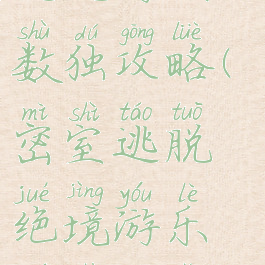 shù dú gōng lüè
数独攻略(
mì shì táo tuō
密室逃脱
jué jìng yóu lè
绝境游乐